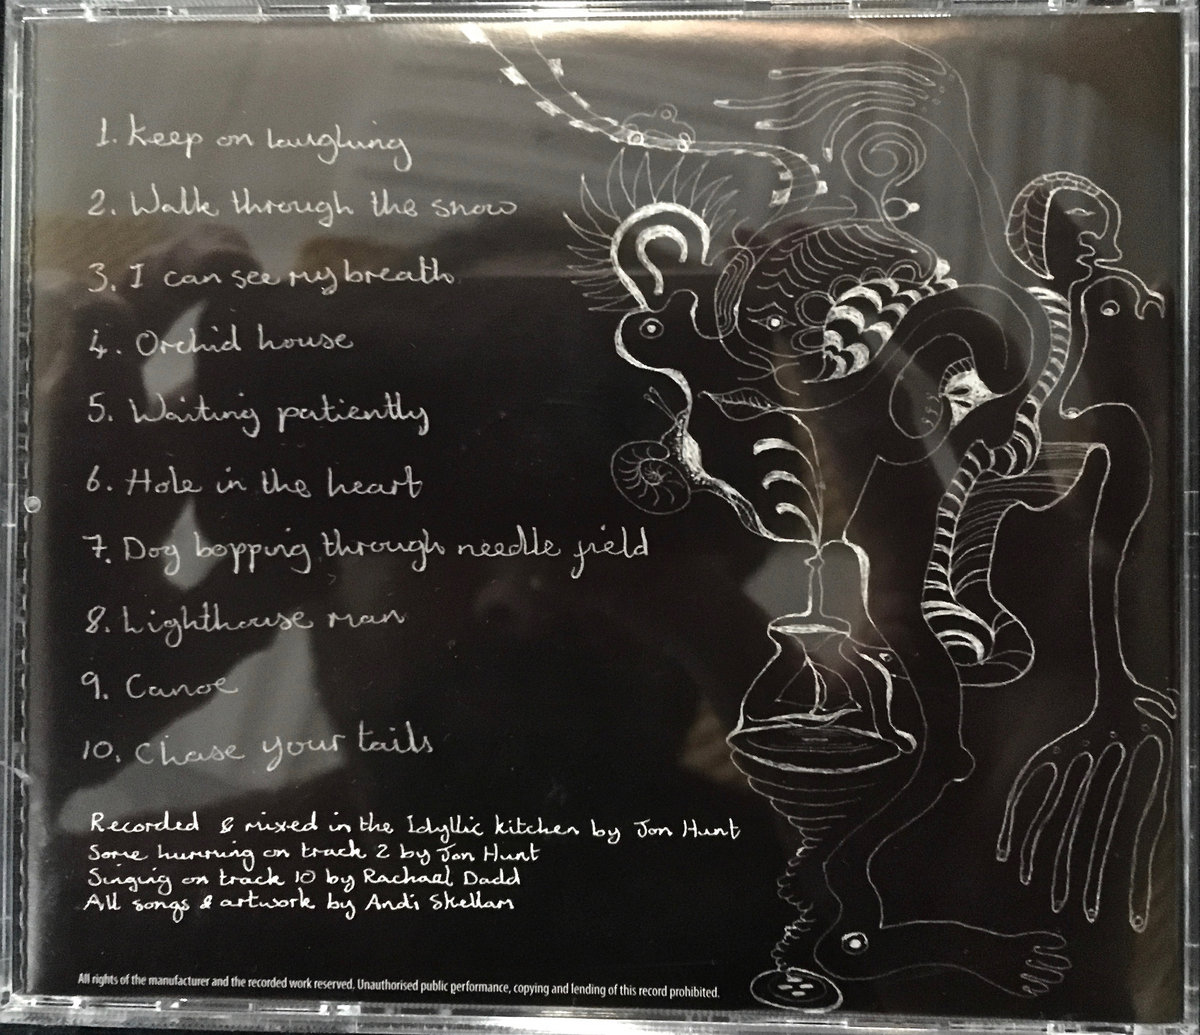 1. Keep on laughing
2. Walk through the snow
3. I can see my breath
4. Orchid house
5. Waiting patiently
6. Hole in the heart
7. Dog bopping through needle field
8. Lighthouse man
9. Canoe
10. Chase your tails
Recorded & mixed in the Idyllic kitchen by Jon Hunt
Some humming on track 2 by Jon Hunt
Singing on track 10 by Rachael Dadd
All songs & artwork by Andi Skellam
All rights of the manufacturer and the recorded work reserved. Unauthorised public performance, copying and lending of this record prohibited.